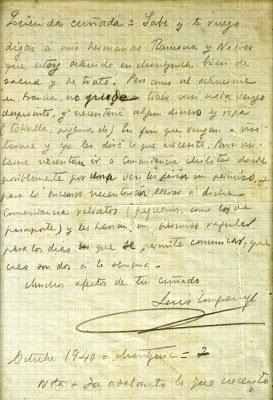 querida cuñada = Sabe y te ruego
digas a mis hermanas Ramona y Nieves
que estoy detenido en Montjuich, bien de
salud y de trato. Pero como al detenerme
en Francia no pude traer con nada vengo
desprovisto, y necesitaré algún dinero y ropa
(toballa, pijama etc) en fin que vengan a visi
tarme y ya les diré lo que necesito. Para visi
tarme necesitan ir a Comandancia militar donde
posiblemente por una vez les darán un permiso, y
para lo sucesivo necesitarán llevar a dicha
Comandancia retratos (pequeños, como los de
pasaporte) y les harán un permiso regular
para los dias en que se permite comunicar, que
creo son dos a la semana.
Muchos afectos de tu cuñado
Luis Companys
Octubre 1940 = Montjuich =
Nota = Ya adelanto lo que necesito